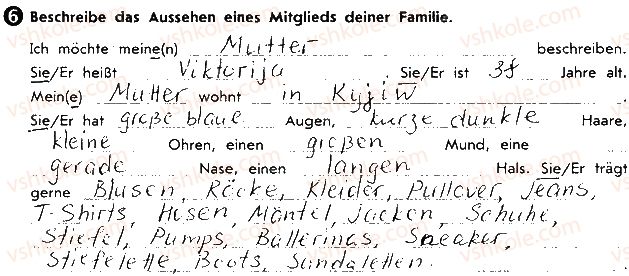 6 Beschreibe das Aussehen eines Mitglieds deiner Familie.
Ich möchte meine(n) Mutter beschreiben.
Sie/Er heißt Viktorija. Sie/Er ist 38 Jahre alt.
Mein(e) Mutter wohnt in Kyjiw.
Sie/Er hat große blaue Augen, kurze dunkle Haare,
kleine Ohren, einen großen Mund, eine
gerade Nase, einen langen Hals. Sie/Er trägt
gerne Blusen, Röcke, Kleider, Pullover, Jeans,
T-Shirts, Hosen, Mäntel, Jacken, Schuhe,
Stiefel, Pumps, Ballerinas, Sneaker,
Stiefelette Boots Sandaletten.